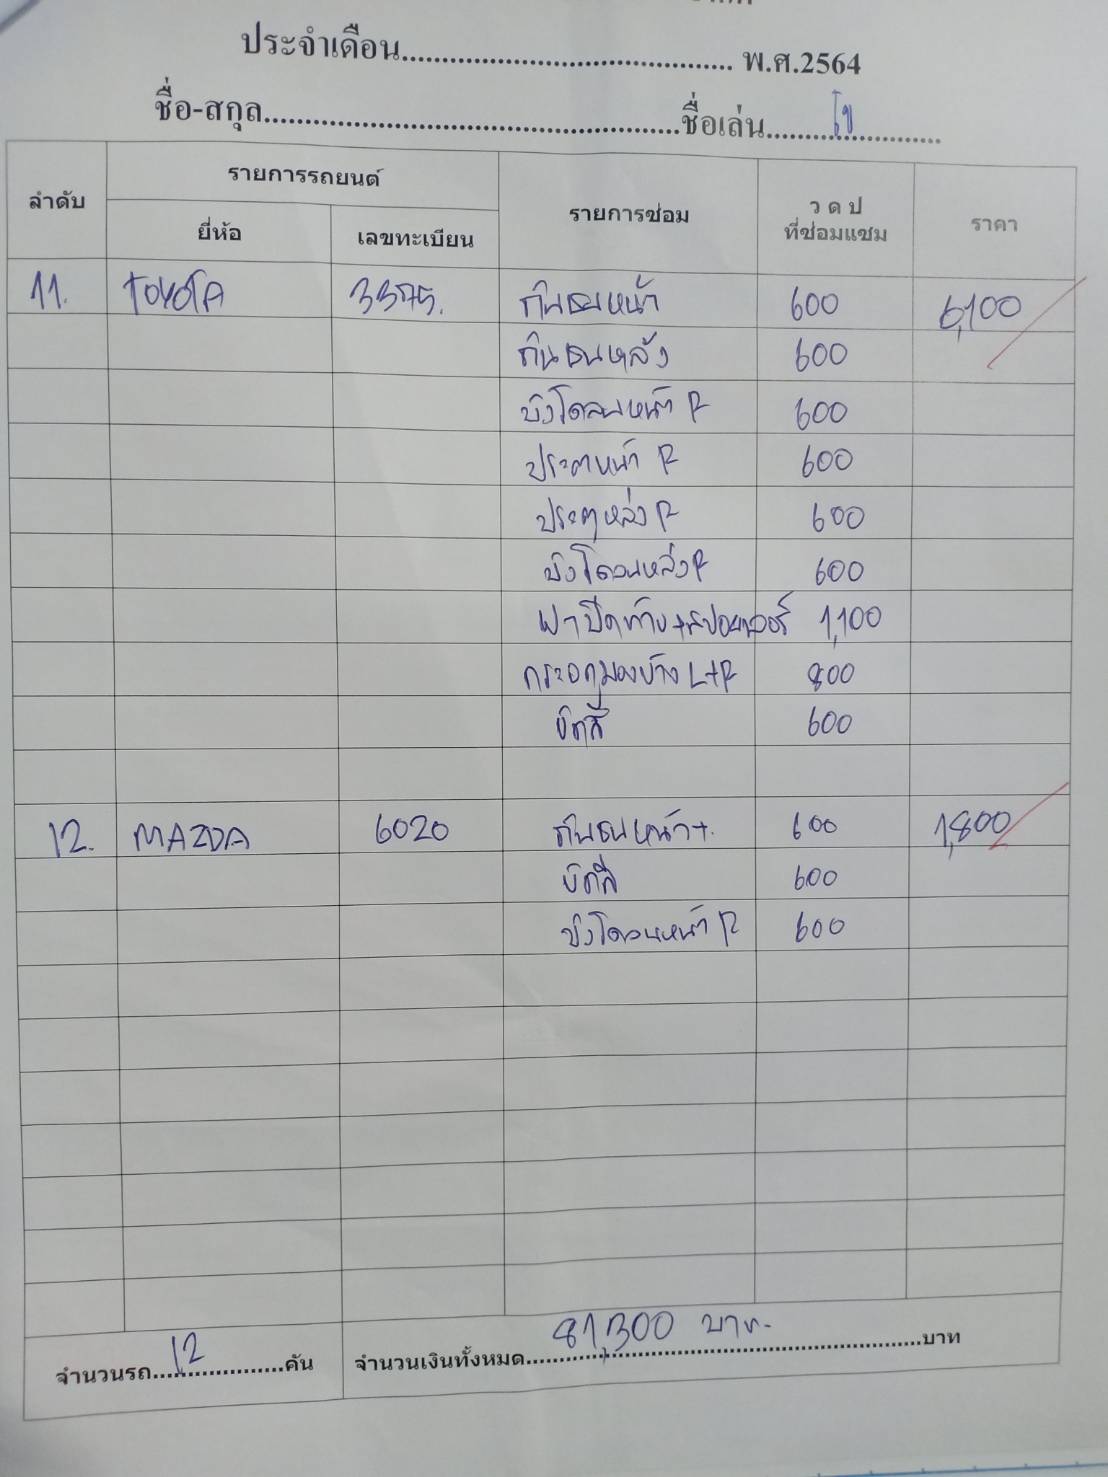 ประจำเดือน.......................................... พ.ศ.2564
ชื่อ-สกุล....................................................ชื่อเล่น......................
ลำดับ รายการรถยนต์ รายการซ่อม ว ด ป ที่ซ่อมแซม ราคา
ยี่ห้อ เลขทะเบียน
11. TOYOTA 3375. กันชนหน้า 600 6,100
กันชนหลัง 600
บังโคลนหน้า R 600
ประตูหน้า R 600
ประตูหลัง R 600
บังโคลนหลัง R 600
ฝาปิดท้าย+สปอยเลอร์ 1,100
กระจกมองข้าง L+R 800
ขัดสี 600
12. MAZDA 6020 กันชนหน้า+. 600 1,800
ขัดสี 600
บังโคลนหน้า R 600
จำนวนรถ...12...คัน จำนวนเงินทั้งหมด...81,300 บาท...บาท